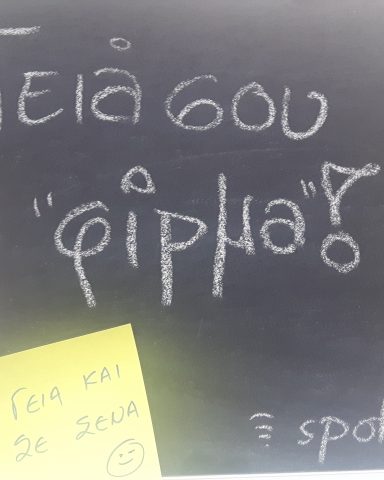 Γειά σου
"φίρμα"!
ΓΕΙΑ ΚΑΙ
ΣΕ ΣΕΝΑ